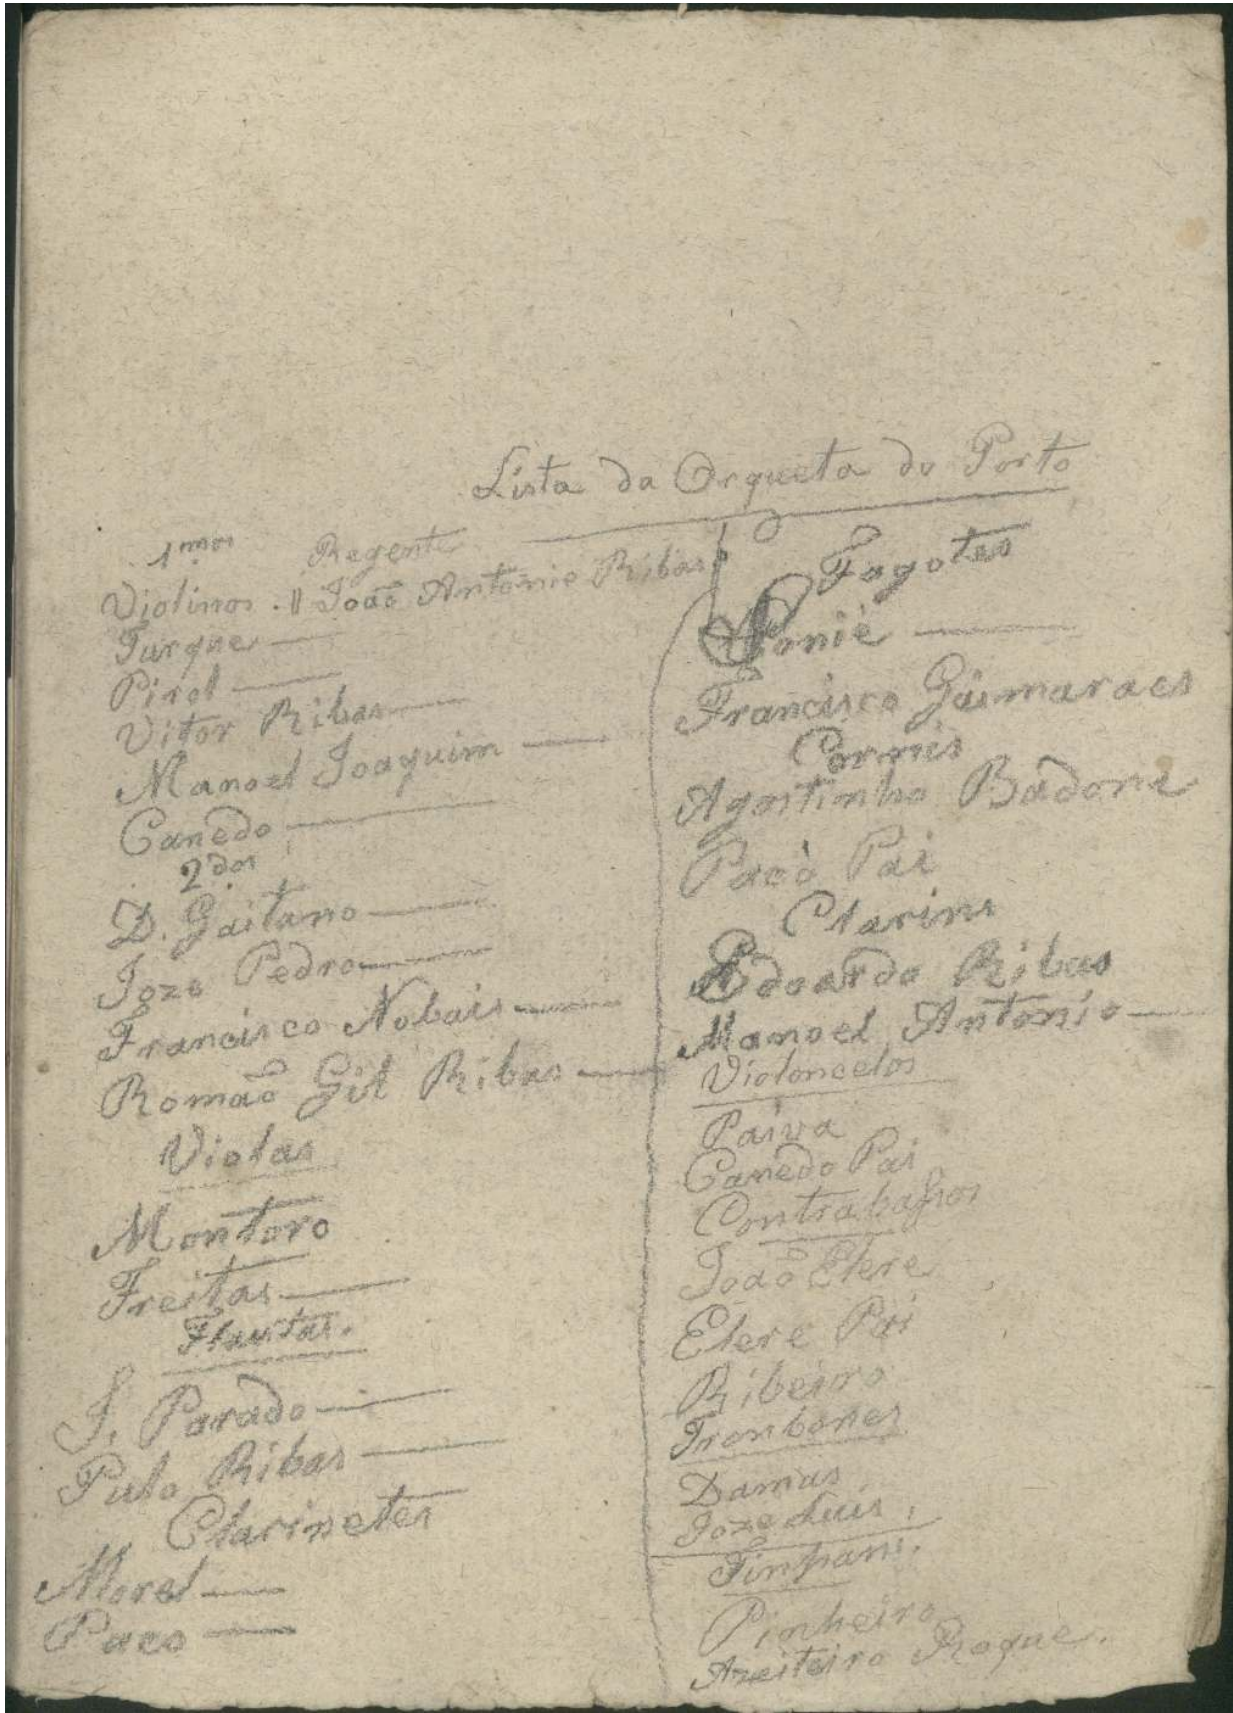 Lista da Orqueta do Porto
1.mos Regente
Violinos. || João Antonio Ribas
Turque
Pirol
Vitor Ribas
Manoel Joaquim
Canedo
2.dos
D. Gaitano
Joze Pedro
Francisco Nobais
Romão Gil Ribas
Violas
Montoro
Freitas
Flautas.
J. Parado
Pulo Ribas
Clarinetes
Morel
Paco
Fagotes
Francisco Gaimaraes
Cornis
Agostinho Badone
Pacò Pai
Clarins
Edoardo Ribas
Manoel Antonio
Violoncelos
Paiva
Canedo Pai
Contrabassos
João Elere
Elere Pai
Ribeiro
Trombones
Damas
Joze Luis.
Timpani.
Pinheiro
Azeiteiro Roque.